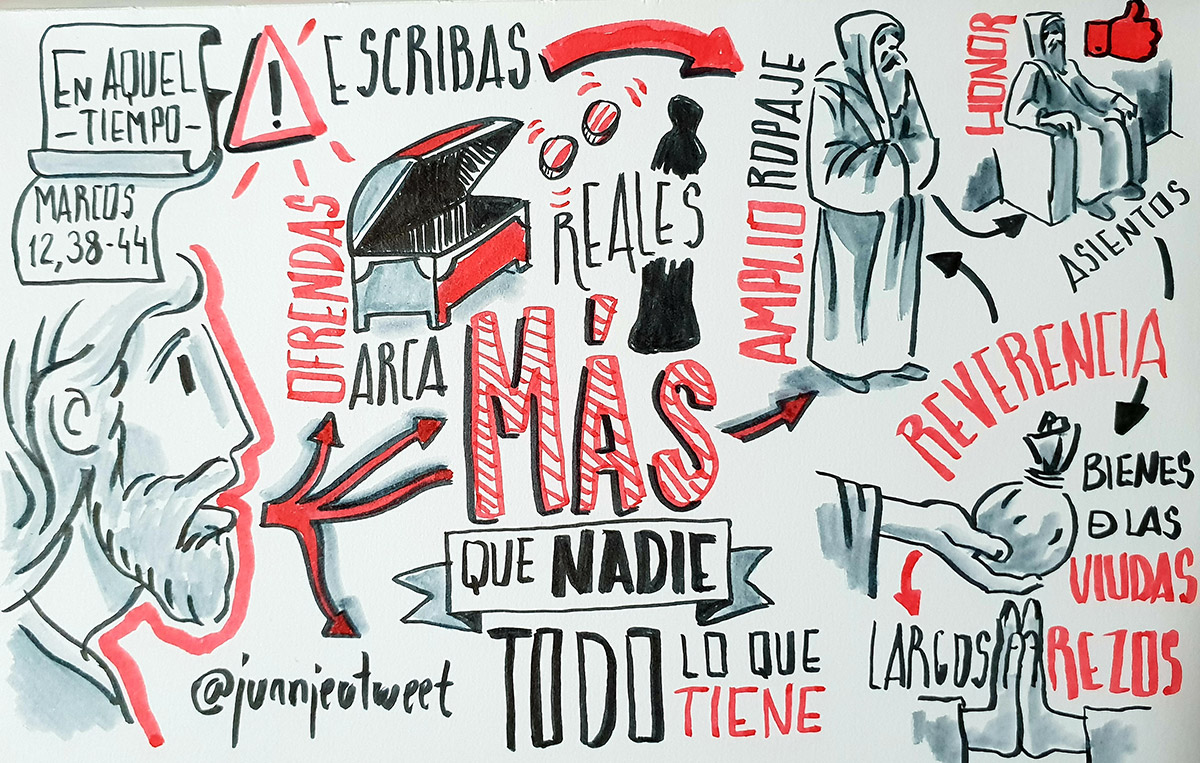 EN AQUEL
- TIEMPO -
MARCOS
12,38-44
!
ESCRIBAS
OFRENDAS
ARCA
REALES
MÁS
QUE NADIE
TODO
LO QUE
TIENE
AMPLIO ROPAJE
HONOR
ASIENTOS
REVERENCIA
BIENES
D LAS
VIUDAS
LARGOS REZOS
@juanjeotweet